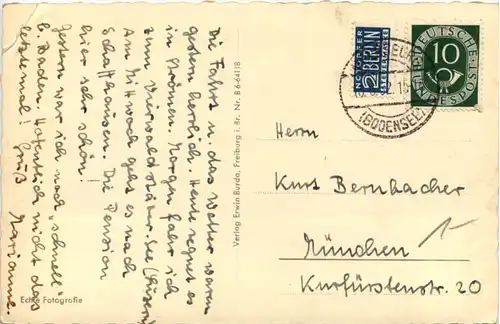 Die Fahrt u. das Wetter waren
gestern herrlich. Heute regnet es
in Strömen. Morgen fahr ich
zum Vierwaldstätter-See (Luzern)
Am Mittwoch gehts es nach
Schaffhausen. Die Pension
hier sehr schön!
Gestern war ich noch "schnell"
b. Baden. Hofentlich nicht das
letztemal! Gruß
Marianne.
Echte Fotografie
Verlag Erwin Burda, Freiburg i. Br. Nr. B 6-6411 B
NOTOPFER
2 BERLIN
STEUERMARKE
DEUTSCHE
10
BUNDESPOST
(BODENSEE)
Herrn
Kurt Bernbacher
München
Kurfürstenstr. 20